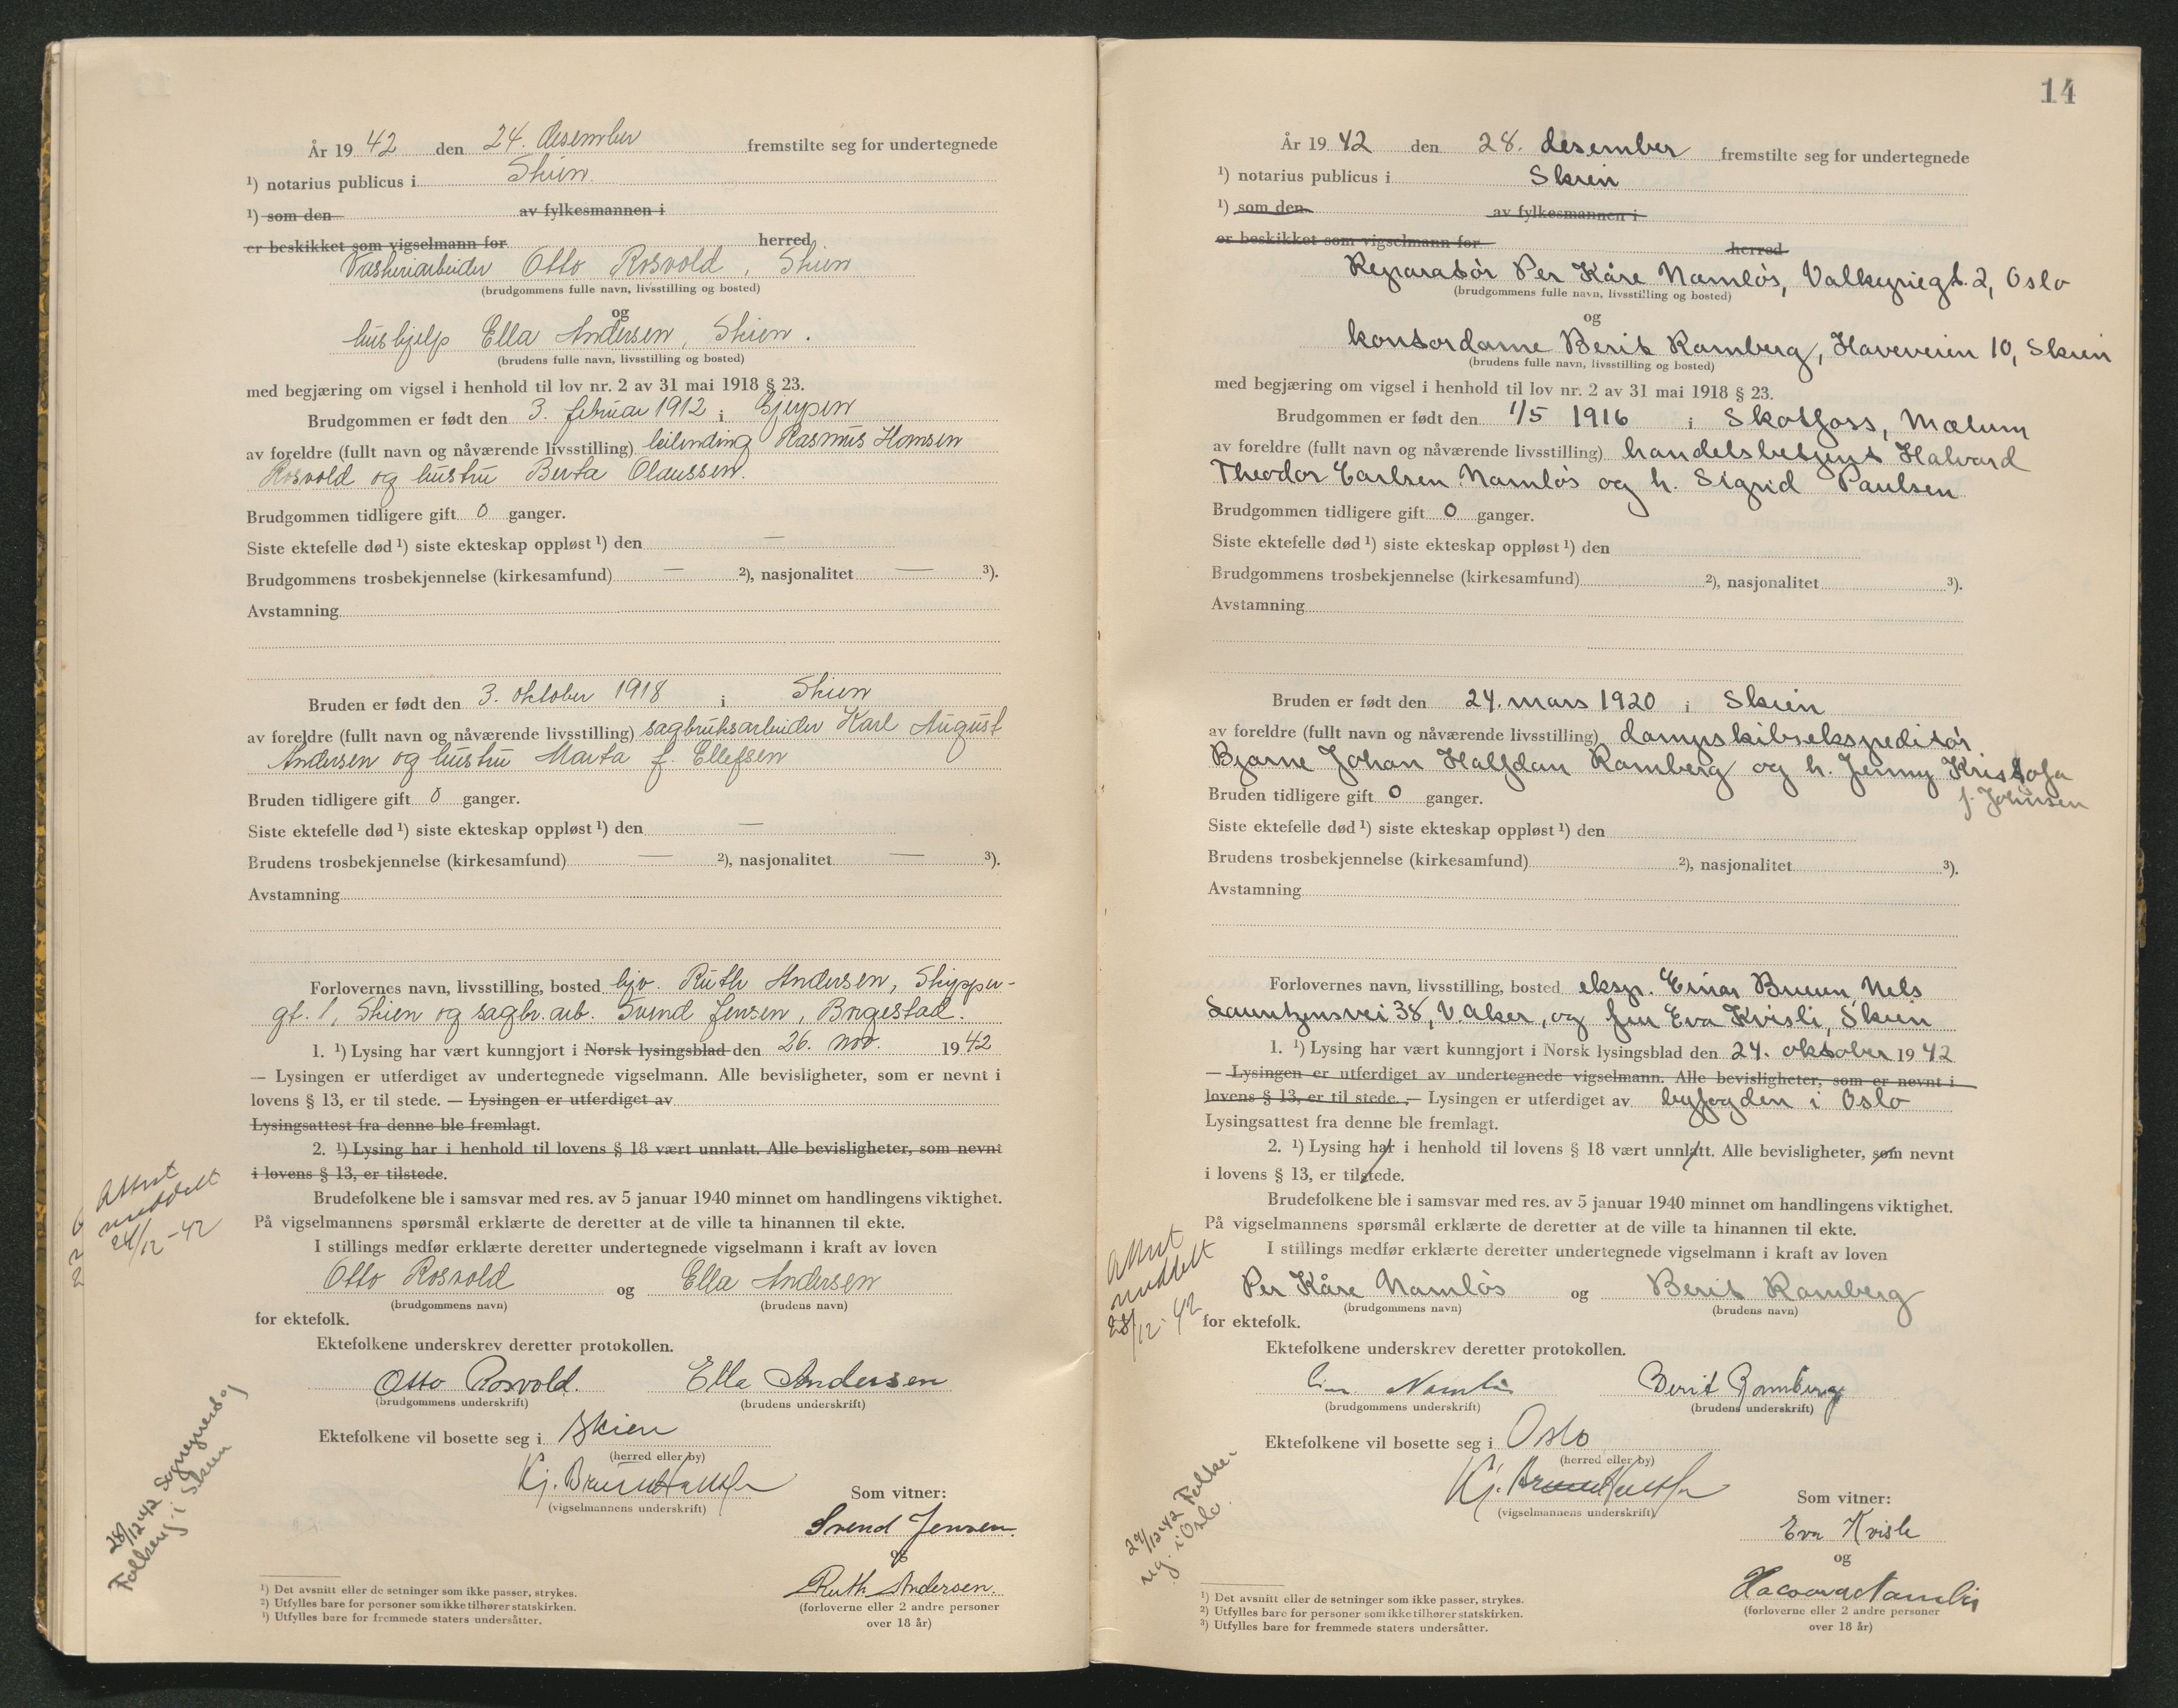 År 1942 den 24. desember fremstilte seg for undertegnede
¹) notarius publicus i Skien.
¹) som den av fylkesmannen i
er beskikket som vigselmann for herred
Vaskeriarbeider Otto Rosvold, Skien
(brudgommens fulle navn, livsstilling og bosted)
og
hushjelp Ella Andersen, Skien.
(brudens fulle navn, livsstilling og bosted)
med begjæring om vigsel i henhold til lov nr. 2 av 31 mai 1918 § 23.
Brudgommen er født den 3. februar 1912 i Gjerpen
av foreldre (fullt navn og nåværende livsstilling) leilending Rasmus Hansen
Rosvold og hustru Berta Olaussen.
Brudgommen tidligere gift 0 ganger.
Siste ektefelle død ¹) siste ekteskap oppløst ¹) den —
Brudgommens trosbekjennelse (kirkesamfund) — ²), nasjonalitet — ³).
Avstamning
Bruden er født den 3. oktober 1918 i Skien
av foreldre (fullt navn og nåværende livsstilling) sagbruksarbeider Karl August
Andersen og hustru Marta f. Ellefsen
Bruden tidligere gift 0 ganger.
Siste ektefelle død ¹) siste ekteskap oppløst ¹) den —
Brudens trosbekjennelse (kirkesamfund) — ²), nasjonalitet — ³).
Avstamning
Forlovernes navn, livsstilling, bosted Ruth Andersen, Skipper-
gt. 1, Skien og sagbr.arb. Svend Jensen, Borgestad.
1. ¹) Lysing har vært kunngjort i Norsk lysingsblad den 26. nov. 1942
— Lysingen er utferdiget av undertegnede vigselmann. Alle bevisligheter, som er nevnt i
lovens § 13, er til stede. — Lysingen er utferdiget av
Lysingsattest fra denne ble fremlagt.
2. ¹) Lysing har i henhold til lovens § 18 vært unnlatt. Alle bevisligheter, som nevnt
i lovens § 13, er tilstede.
Brudefolkene ble i samsvar med res. av 5 januar 1940 minnet om handlingens viktighet.
På vigselmannens spørsmål erklærte de deretter at de ville ta hinannen til ekte.
I stillings medfør erklærte deretter undertegnede vigselmann i kraft av loven
Otto Rosvold og Ella Andersen
(brudgommens navn) (brudens navn)
for ektefolk.
Ektefolkene underskrev deretter protokollen.
Otto Rosvold. Ella Andersen
(brudgommens underskrift) (brudens underskrift)
Ektefolkene vil bosette seg i Skien
(herred eller by)
(vigselmannens underskrift)
Som vitner:
Svend Jensen.
og
Ruth Andersen.
(forloverne eller 2 andre personer
over 18 år)
Attest
meddelt
24/12-42
28/12 42 Sogneprest og
Folkereg. i Skien
¹) Det avsnitt eller de setninger som ikke passer, strykes.
²) Utfylles bare for personer som ikke tilhører statskirken.
³) Utfylles bare for fremmede staters undersåtter.
14
År 1942 den 28. desember fremstilte seg for undertegnede
¹) notarius publicus i Skien
¹) som den av fylkesmannen i
er beskikket som vigselmann for herred
Reparatør Per Kåre Namløs, Valkyriegt. 2, Oslo
(brudgommens fulle navn, livsstilling og bosted)
og
kontordame Berit Ramberg, Haveveien 10, Skien
(brudens fulle navn, livsstilling og bosted)
med begjæring om vigsel i henhold til lov nr. 2 av 31 mai 1918 § 23.
Brudgommen er født den 1/5 1916 i Skotfoss, Mælum
av foreldre (fullt navn og nåværende livsstilling) handelsbetjent Halvard
Theodor Carlsen Namløs og h. Sigrid Paulsen
Brudgommen tidligere gift 0 ganger.
Siste ektefelle død ¹) siste ekteskap oppløst ¹) den
Brudgommens trosbekjennelse (kirkesamfund) ²), nasjonalitet ³).
Avstamning
Bruden er født den 24. mars 1920 i Skien
av foreldre (fullt navn og nåværende livsstilling) dampskibsekspeditør
Bjarne Johan Halfdan Ramberg og h. Jenny Kristofa
f. Johnsen
Bruden tidligere gift 0 ganger.
Siste ektefelle død ¹) siste ekteskap oppløst ¹) den
Brudens trosbekjennelse (kirkesamfund) ²), nasjonalitet ³).
Avstamning
Forlovernes navn, livsstilling, bosted eksp. Einar Bruun, Nels
Lauritzensvei 38, V. Aker, og fru Eva Kvisli, Skien
1. ¹) Lysing har vært kunngjort i Norsk lysingsblad den 24. oktober 1942
— Lysingen er utferdiget av undertegnede vigselmann. Alle bevisligheter, som er nevnt i
lovens § 13, er til stede. — Lysingen er utferdiget av byfogden i Oslo
Lysingsattest fra denne ble fremlagt.
2. ¹) Lysing har i henhold til lovens § 18 vært unnlatt. Alle bevisligheter, som nevnt
i lovens § 13, er tilstede.
Brudefolkene ble i samsvar med res. av 5 januar 1940 minnet om handlingens viktighet.
På vigselmannens spørsmål erklærte de deretter at de ville ta hinannen til ekte.
I stillings medfør erklærte deretter undertegnede vigselmann i kraft av loven
Per Kåre Namløs og Berit Ramberg
(brudgommens navn) (brudens navn)
for ektefolk.
Ektefolkene underskrev deretter protokollen.
Namløs Berit Ramberg
(brudgommens underskrift) (brudens underskrift)
Ektefolkene vil bosette seg i Oslo
(herred eller by)
(vigselmannens underskrift)
Som vitner:
Eva Kvisli
og
Namløs
(forloverne eller 2 andre personer
over 18 år)
Attest
meddelt
28/12-42
29/12 42 Folke-
reg. i Oslo.
¹) Det avsnitt eller de setninger som ikke passer, strykes.
²) Utfylles bare for personer som ikke tilhører statskirken.
³) Utfylles bare for fremmede staters undersåtter.